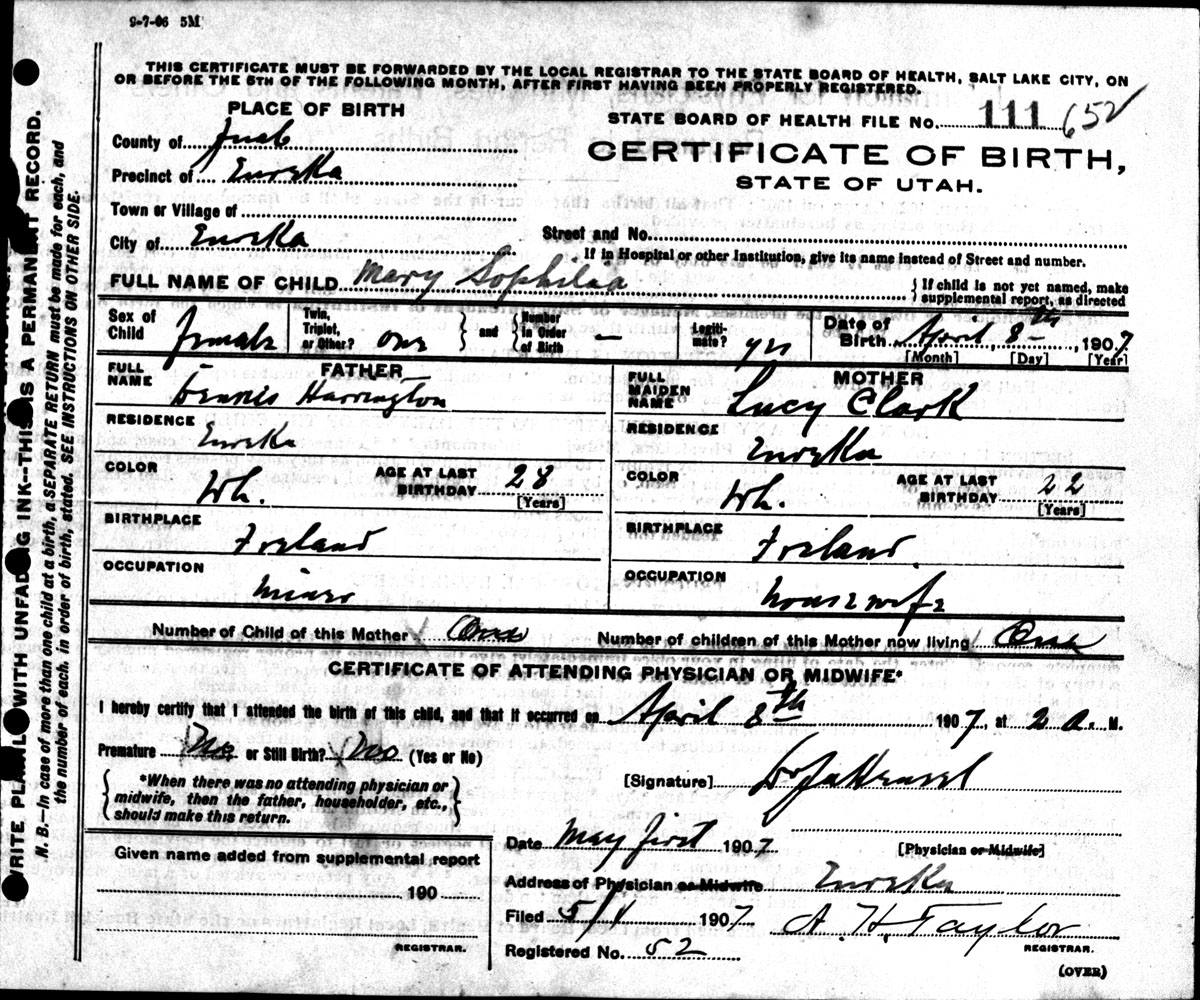 9-7-06 5M
THIS CERTIFICATE MUST BE FORWARDED BY THE LOCAL REGISTRAR TO THE STATE BOARD OF HEALTH, SALT LAKE CITY, ON
OR BEFORE THE 5TH OF THE FOLLOWING MONTH, AFTER FIRST HAVING BEEN PROPERLY REGISTERED.
PLACE OF BIRTH
STATE BOARD OF HEALTH FILE No. 111 652
County of Juab
CERTIFICATE OF BIRTH,
Precinct of Eureka
STATE OF UTAH.
Town or Village of
City of Eureka
Street and No.
If in Hospital or other Institution, give its name instead of Street and number.
FULL NAME OF CHILD Mary Sophelia
{ If child is not yet named, make supplemental report, as directed
Sex of Child Female
Twin, Triplet, or Other? one } and { Number in Order of Birth —
Legitimate? yes
Date of Birth April 8th, 1907
[Month] [Day] [Year]
FATHER
FULL NAME Dennis Harrington
MOTHER
FULL MAIDEN NAME Lucy Clark
RESIDENCE Eureka
RESIDENCE Eureka
COLOR Wh. AGE AT LAST BIRTHDAY 28 [Years]
COLOR Wh. AGE AT LAST BIRTHDAY 22 [Years]
BIRTHPLACE Ireland
BIRTHPLACE Ireland
OCCUPATION Miner
OCCUPATION Housewife
Number of Child of this Mother One Number of children of this Mother now living One
CERTIFICATE OF ATTENDING PHYSICIAN OR MIDWIFE*
I hereby certify that I attended the birth of this child, and that it occurred on April 8th 1907, at 2 a. M.
Premature No or Still Birth? No (Yes or No)
{ *When there was no attending physician or midwife, then the father, householder, etc., should make this return. }
[Signature]
Date May first 1907 [Physician or Midwife]
Given name added from supplemental report
190
REGISTRAR.
Address of Physician or Midwife Eureka
Filed 5/1 1907 A. H. Taylor
REGISTRAR.
Registered No. 52
(OVER)
WRITE PLAINLY WITH UNFADING INK--THIS IS A PERMANENT RECORD.
N. B.—In case of more than one child at a birth, a SEPARATE RETURN must be made for each, and
the number of each, in order of birth, stated. SEE INSTRUCTIONS ON OTHER SIDE.